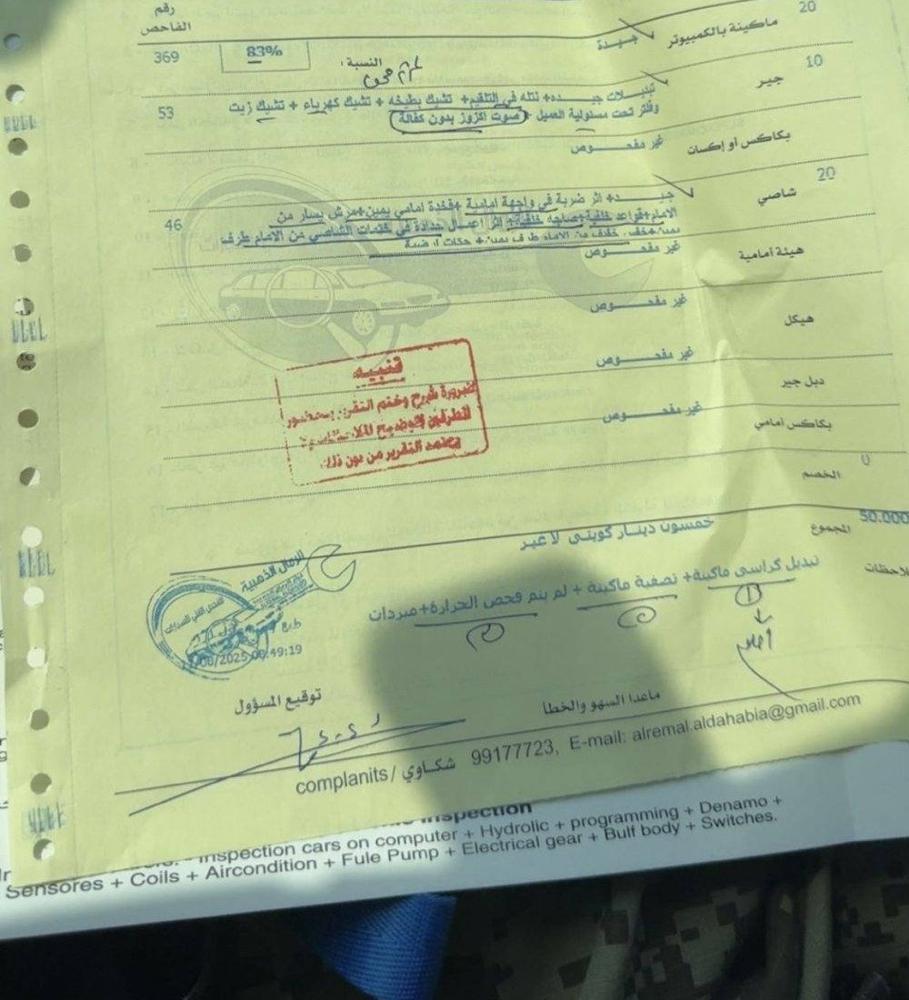 رقم
الفاحص
20 ماكينة بالكمبيوتر جيدة
النسبة: 83% 369
10 جير تبديلات جيده+ نتله في التلقيم+ تشيك بطيخه + تشيك كهرباء + تشيك زيت 53
وفلتر تحت مسئولية العميل + صوت اكزوز بدون كفالة
بكاكس أو إكسات غير مفحوص
20 شاصي جيده+ اثر ضربة في واجهة امامية +فخدة امامي يمين+مرش يسار من 46
الامام+قواعد خلفية+صاجه خلفية+ اثر اعمال حدادة في ختمات الشاصي من الامام طرف
هيئة أمامية غير مفحوص
هيكل غير مفحوص
دبل جير غير مفحوص
بكاكس امامي غير مفحوص
تنبيه
ضرورة شرح وختم التقرير بحضور
الطرفين لتوضيح الملاحظات ولا
يعتمد التقرير من دون ذلك
الخصم 0
المجموع 50.000
خمسون دينار كويتي لا غير
ملاحظات تبديل كراسي ماكينة+ تصفية ماكينة + لم يتم فحص الحرارة+مبردات
الرمال الذهبية
2025 00:49:19
توقيع المسؤول
ماعدا السهو والخطأ
complanits / شكاوي 99177723, E-mail: alremal.aldahabia@gmail.com
inspection
Inspection cars on computer + Hydrolic + programming + Denamo +
Sensores + Coils + Aircondition + Fule Pump + Electrical gear + Bulf body + Switches.